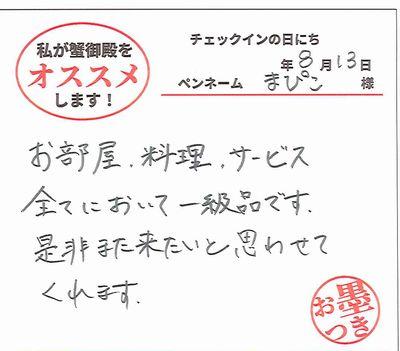 私が蟹御殿を
オススメ
します！
チェックインの日にち
年8月13日
ペンネーム まぴこ 様
お部屋、料理、サービス
全てにおいて一級品です。
是非また来たいと思わせて
くれます。
お墨つき